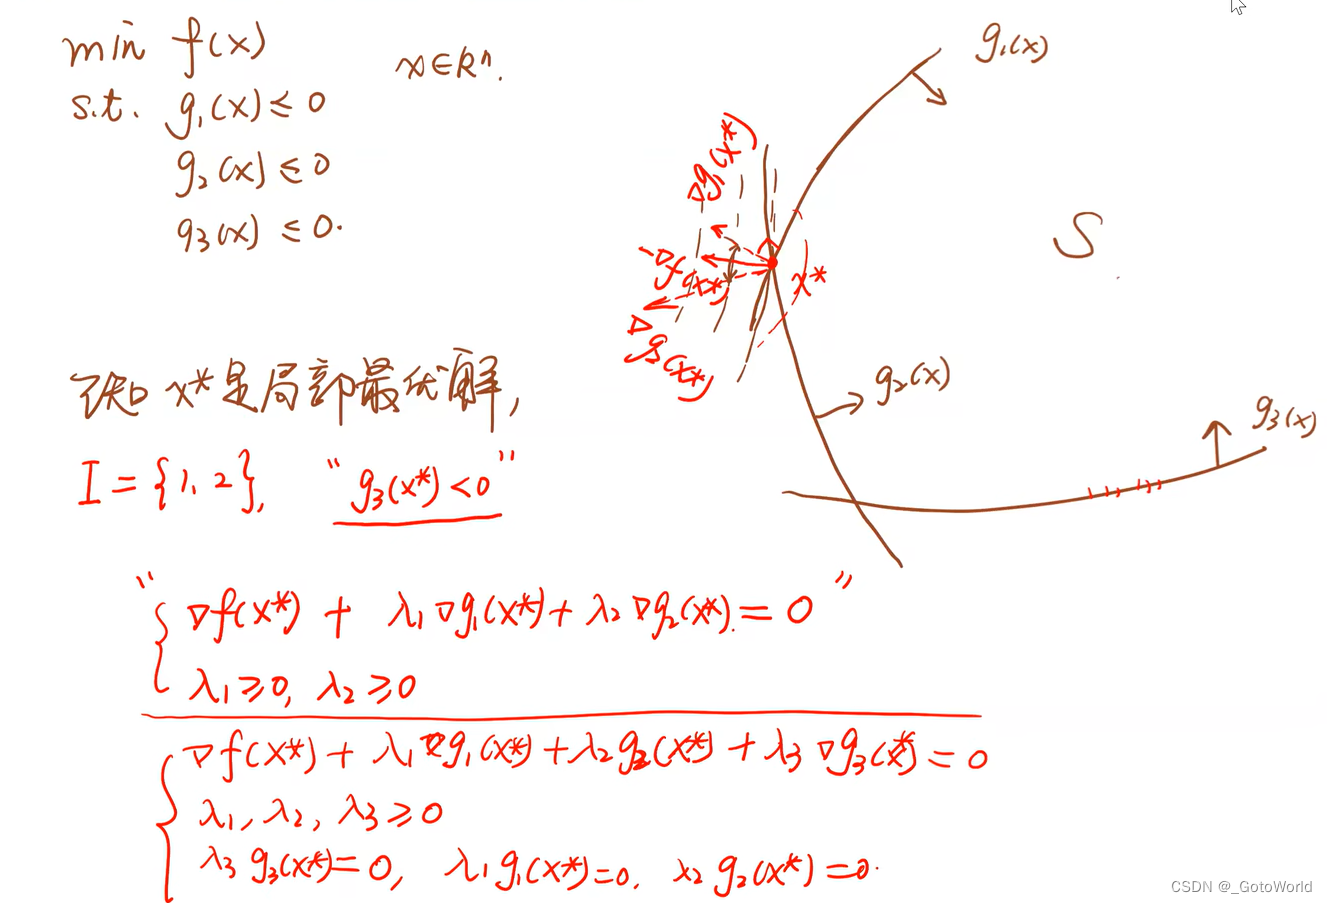 min f(x) x∈Rⁿ.
s.t. g₁(x) ≤ 0
g₂(x) ≤ 0
g₃(x) ≤ 0.
g₁(x)
S
∇g₁(x*)
-∇f(x*)
x*
g₂(x)
g₃(x)
已知 x* 是局部最优解,
I = {1, 2}, "g₃(x*) < 0"
"{ ∇f(x*) + λ₁∇g₁(x*) + λ₂∇g₂(x*) = 0"
λ₁ ≥ 0, λ₂ ≥ 0
{ ∇f(x*) + λ₁∇g₁(x*) + λ₂g₂(x*) + λ₃∇g₃(x*) = 0
λ₁, λ₂, λ₃ ≥ 0
λ₃g₃(x*) = 0, λ₁g₁(x*) = 0. λ₂g₂(x*) = 0.
CSDN @_GotoWorld